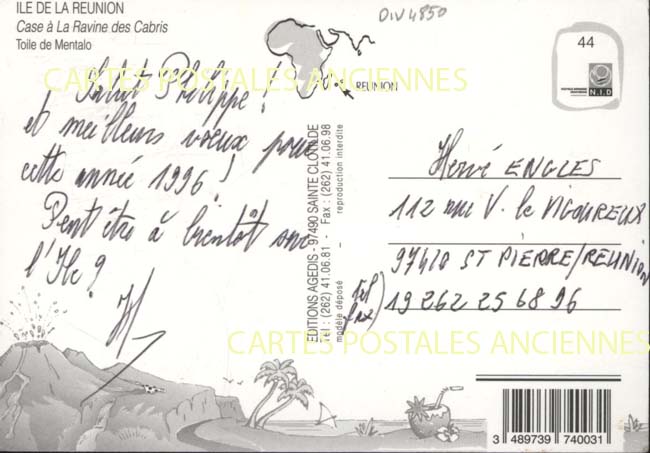 ILE DE LA REUNION
Case à La Ravine des Cabris
Toile de Mentalo
DIV4850
REUNION
44
N.I.D
CARTES POSTALES ANCIENNES
Salut Philippe !
et meilleurs voeux pour
cette année 1996 !
Peut être à bientôt sur
l'Ile ?
H
EDITIONS AGEDIS - 97490 SAINTE CLOTILDE
Tél : (262) 41.06.81 - Fax : (262) 41.06.98
modèle déposé - reproduction interdite
Hervé ENGLES
112 rue V. le VIGOUREUX
97410 ST PIERRE/REUNION
Tel
fax) 19 262 25 68 96
CARTES POSTALES ANCIENNES
3 489739 740031